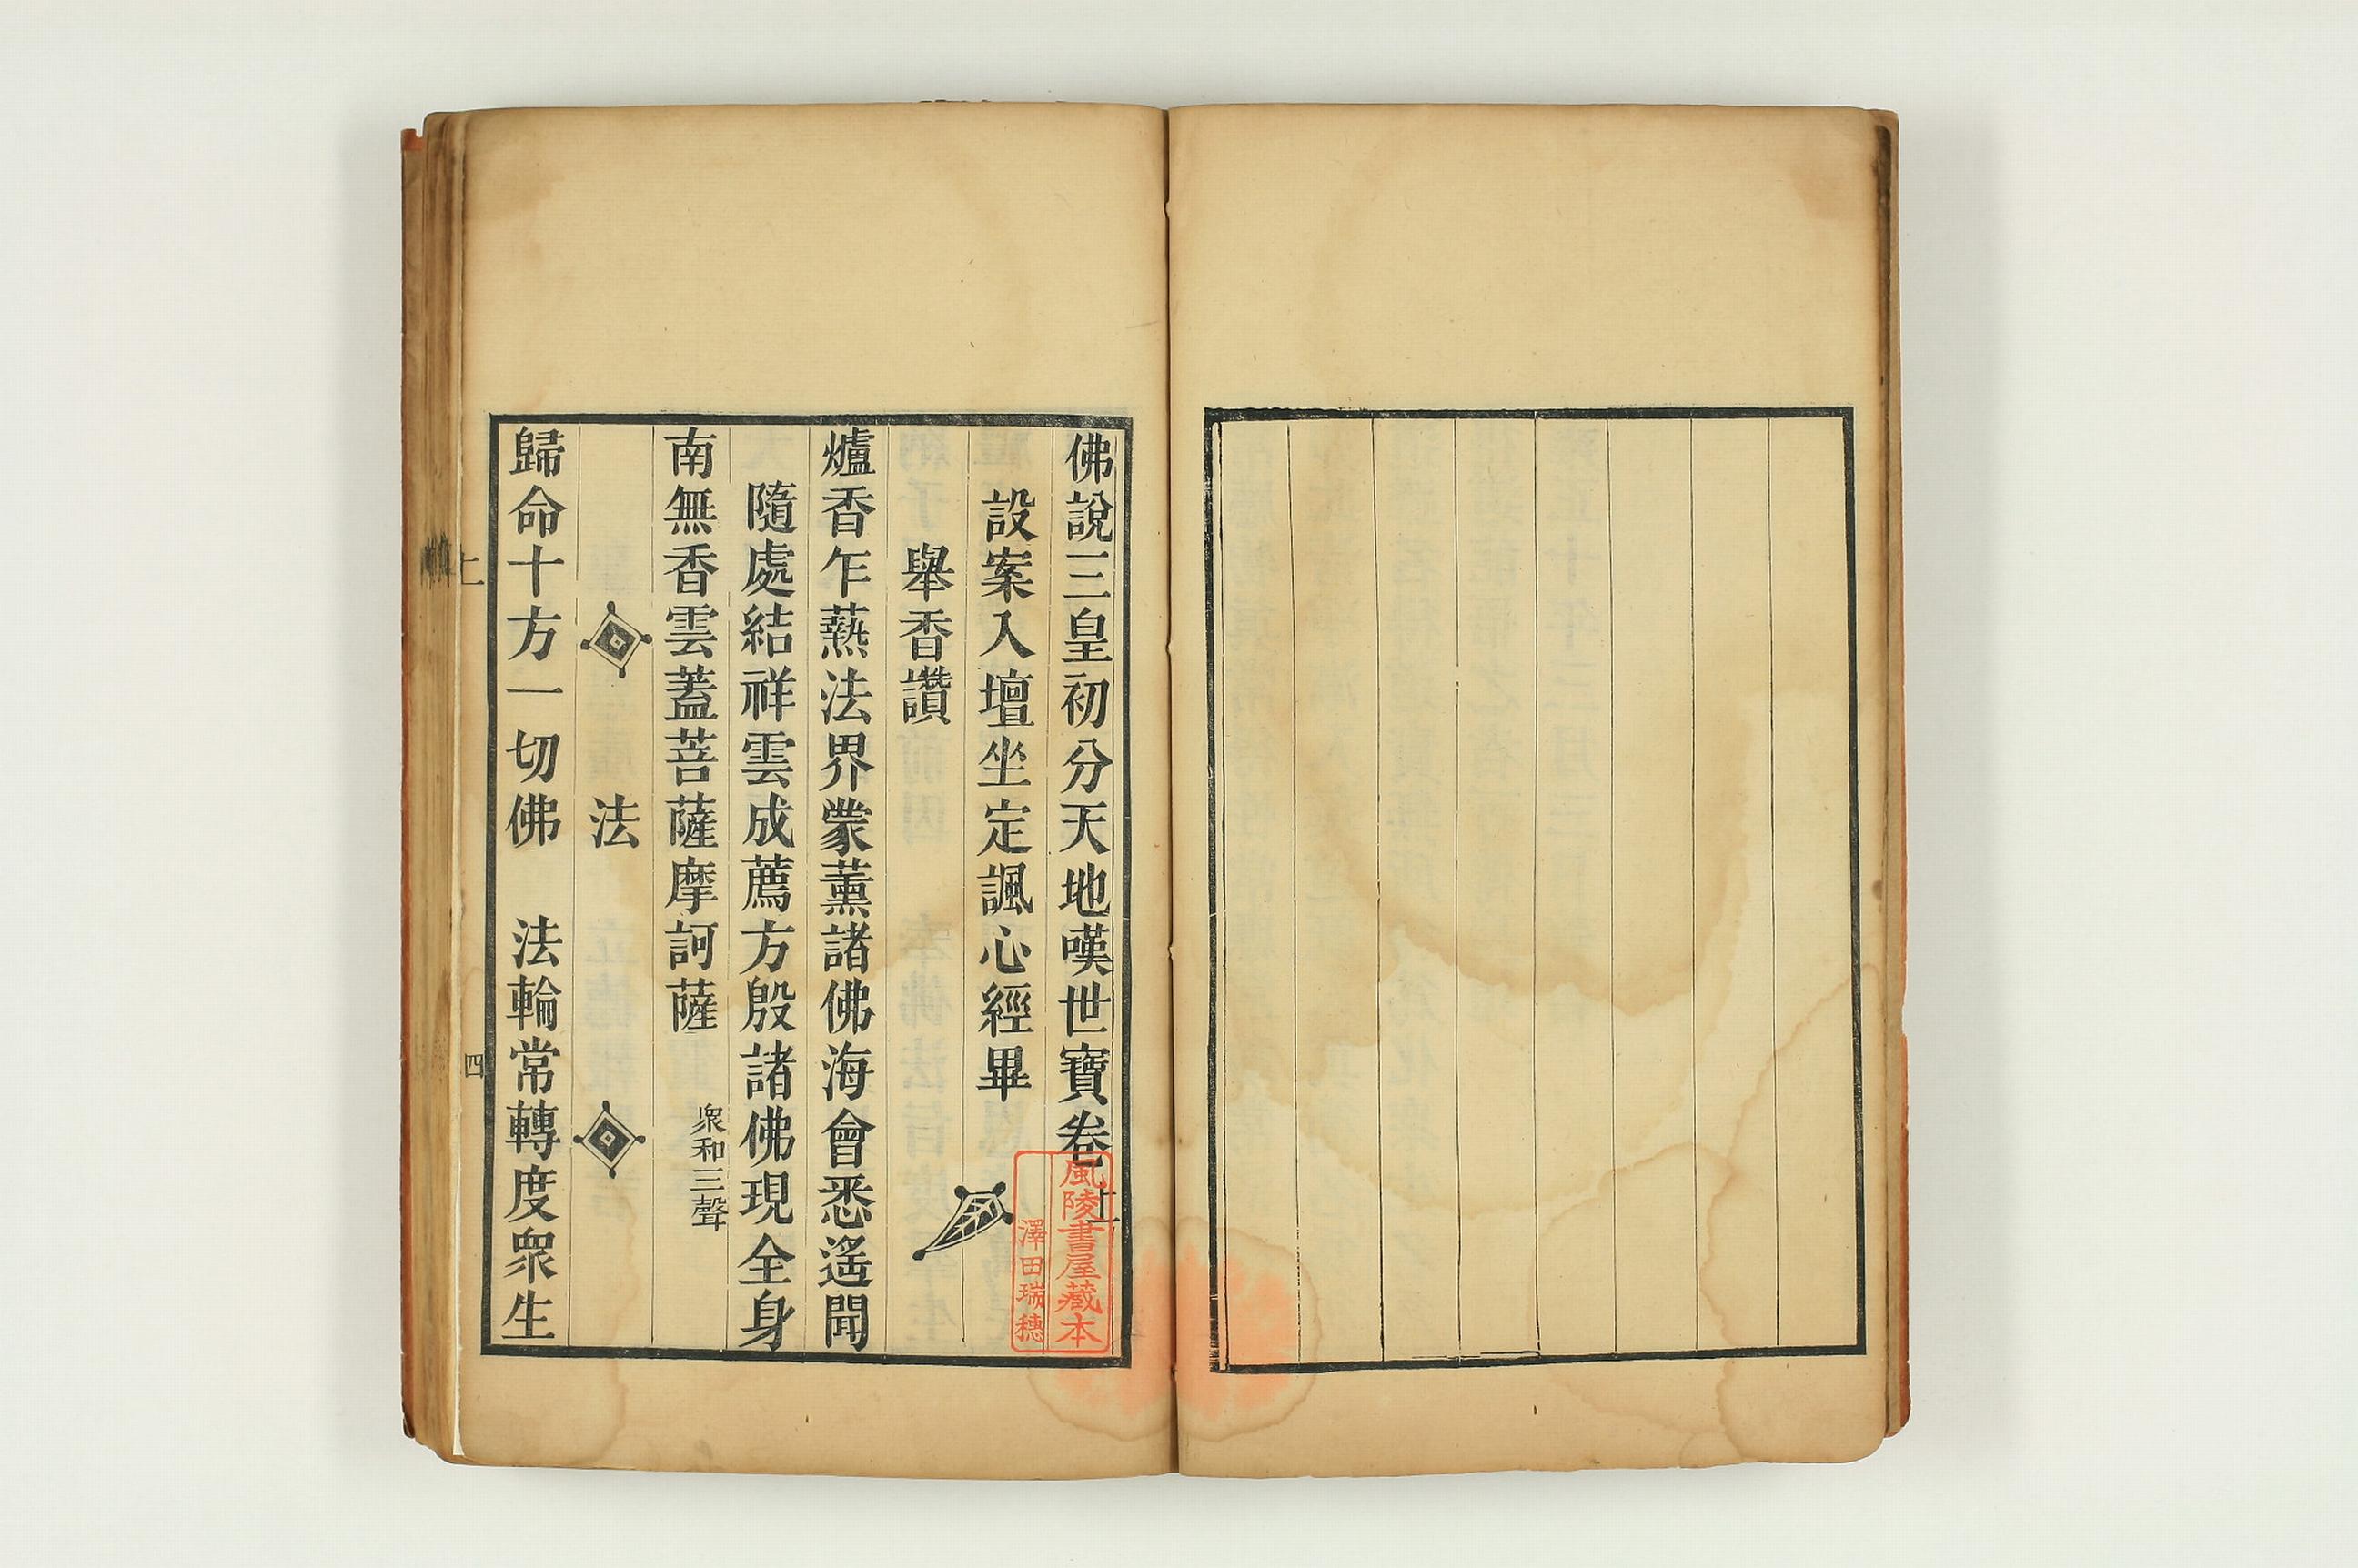 佛說三皇初分天地嘆世寶卷上
設案入壇坐定諷心經畢
舉香讚
爐香乍爇法界蒙薰諸佛海會悉遙聞
隨處結祥雲成薦方殷諸佛現全身
南無香雲蓋菩薩摩訶薩 衆和三聲
法
歸命十方一切佛 法輪常轉度衆生
上
四
風陵書屋藏本
澤田瑞穗